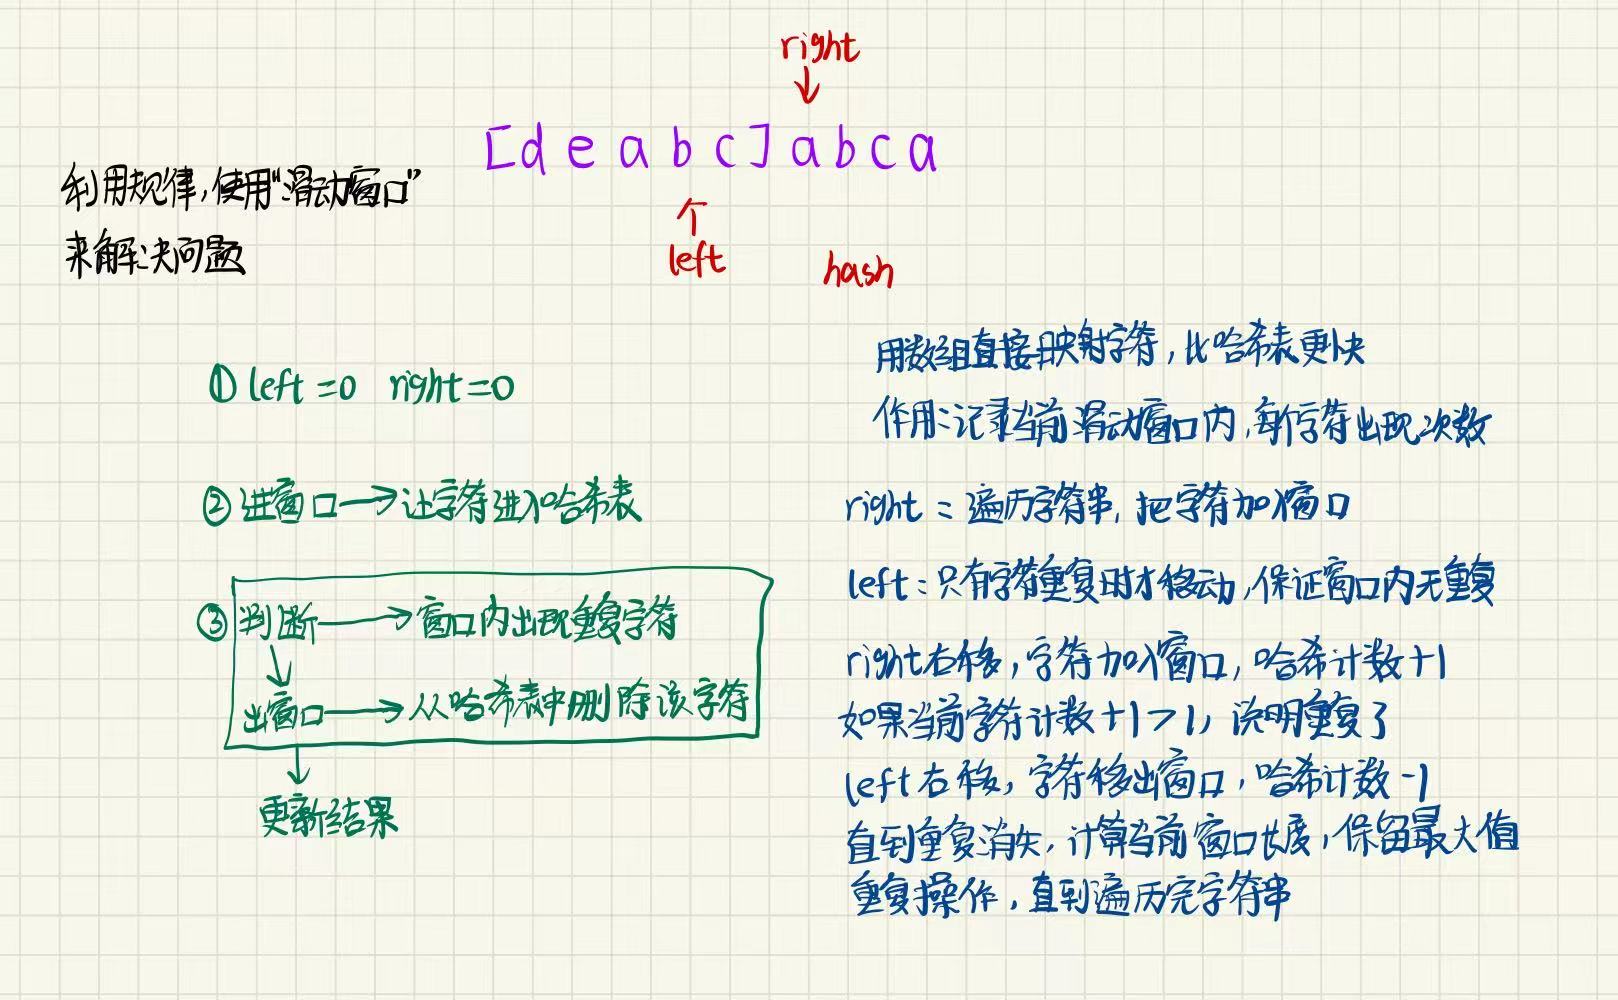 right
↓
[d e a b c] a b c a
利用规律,使用"滑动窗口"
来解决问题
↑
left
hash
① left=0 right=0
② 进窗口→让字符进入哈希表
③ 判断→窗口内出现重复字符
出窗口→从哈希表中删除该字符
更新结果
用数组直接映射字符,比哈希表更快
作用:记录当前滑动窗口内,每个字符出现次数
right:遍历字符串,把字符加入窗口
left:只有字符重复时才移动,保证窗口内无重复
right右移,字符加入窗口,哈希计数+1
如果当前字符计数+1>1,说明重复了
left右移,字符移出窗口,哈希计数-1
直到重复消失,计算当前窗口长度,保留最大值
重复操作,直到遍历完字符串